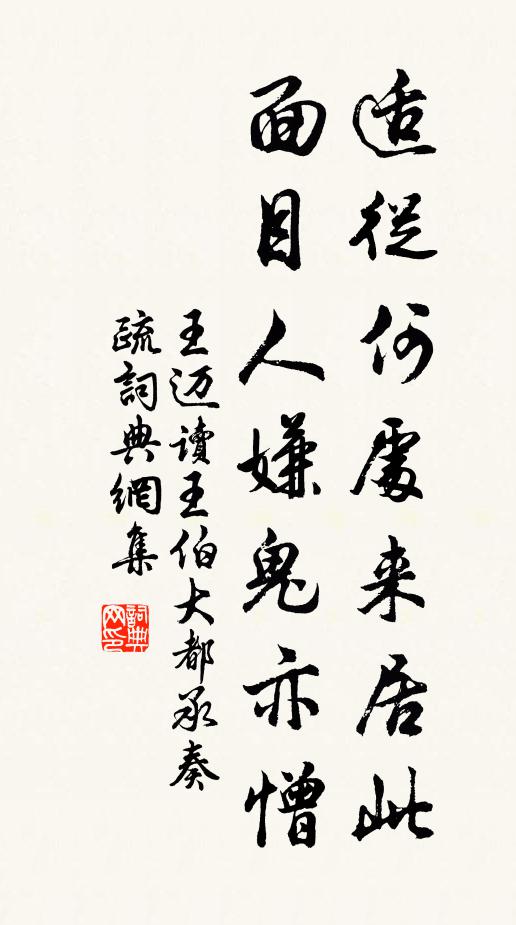 适從何處来居此
面目人嫌鬼亦憎
王迈讀王伯大都承奏
疏詞典網集
詞典网印